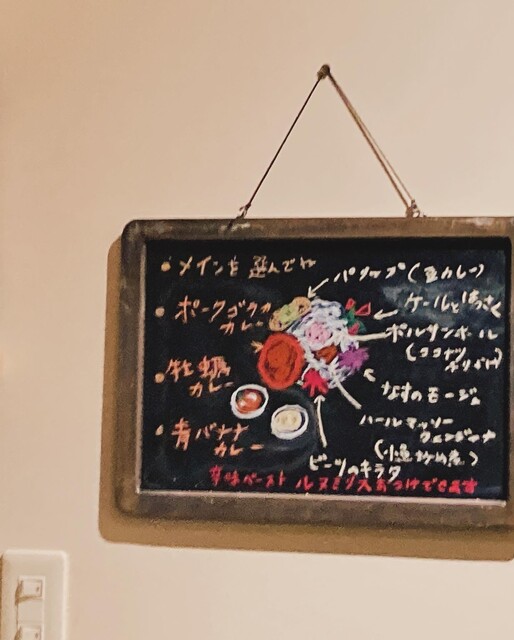 ・メインを選んでね
・ポークゴラカ
カレー
・牡蠣
カレー
・青バナナ
カレー
パリップ(豆カレー)
ケールとはっさく
ポルサンボール
(ココナッツ
ふりかけ)
なすのモージュ
ハールマッソー
(小魚炒め煮)
ビーツのキラタ
辛味ペースト ルヌミリス あつけできます